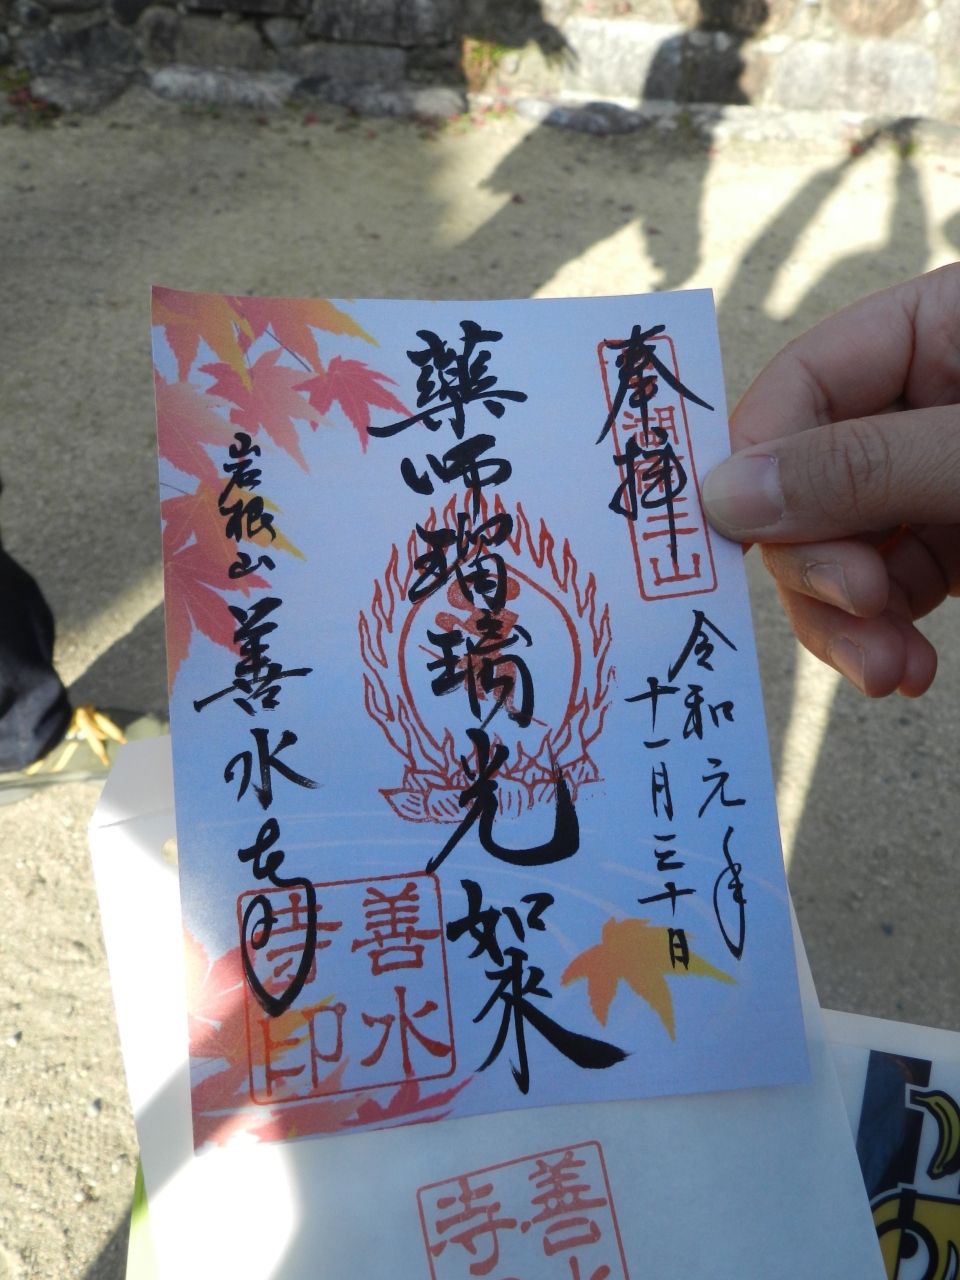 奉拝
湖南三山
令和元年
十一月三十日
藥師瑠璃光如来
岩根山
善水寺
善水
寺印
善水
寺